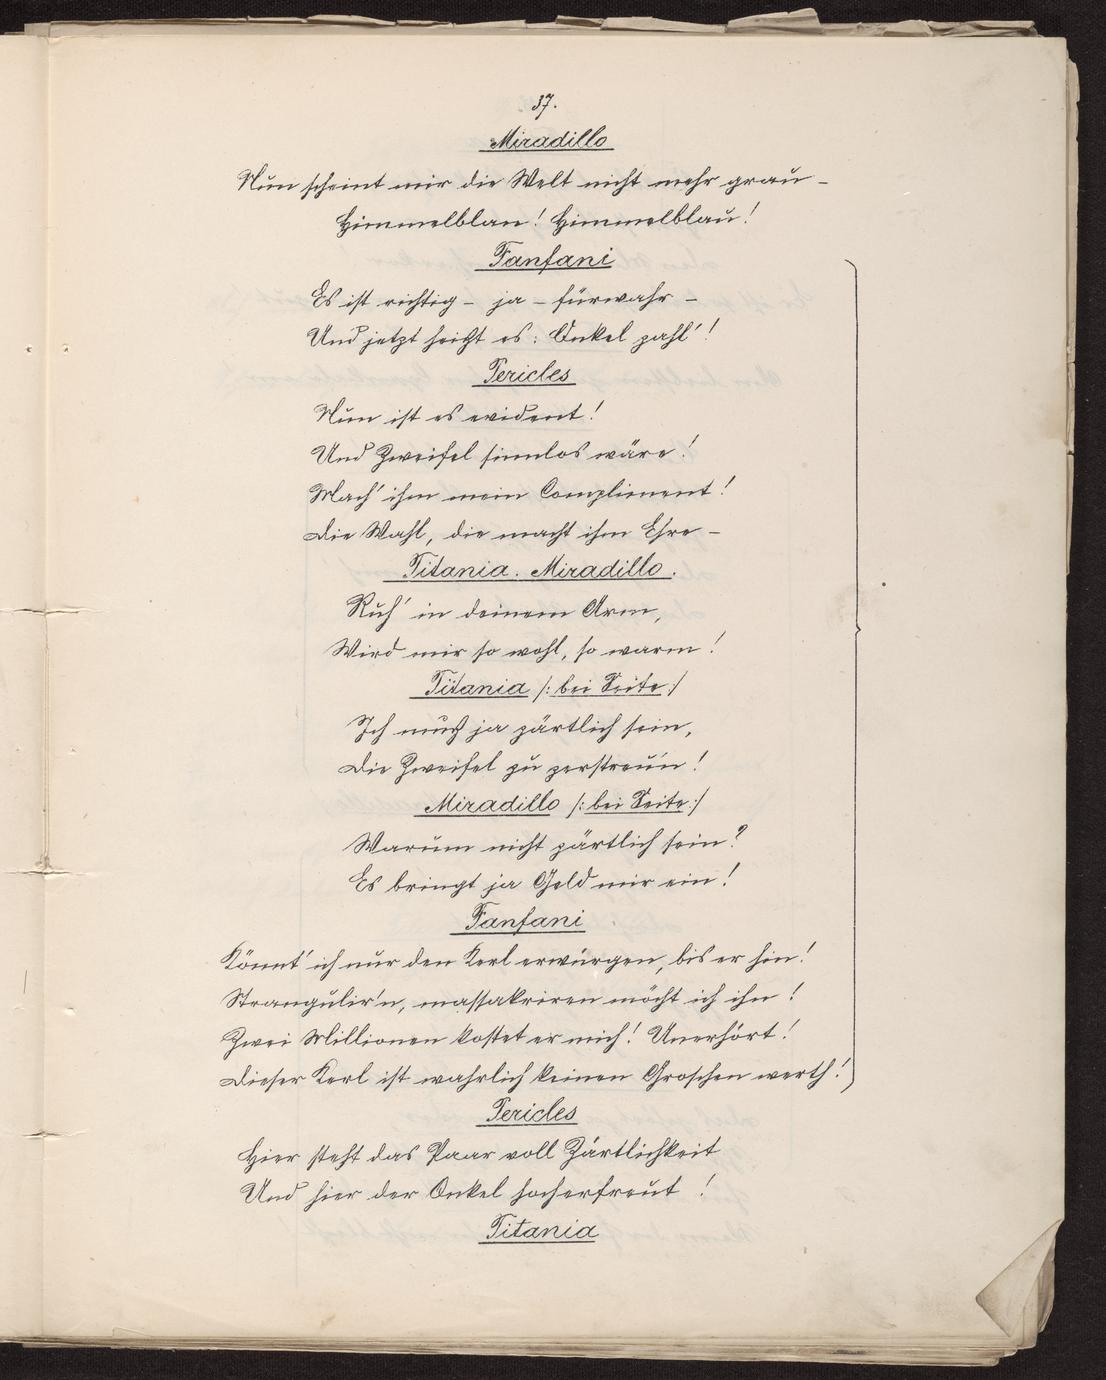 37.
Miradillo
Nun scheint mir die Welt nicht mehr grau –
Himmelblau! Himmelblau!
Fanfani
Es ist richtig – ja – fürwahr –
Und jetzt heißt es: Onkel zahl'!
Pericles
Nun ist es evident!
Und Zweifel sinnlos wäre!
Mach' ihm mein Compliment!
Die Wahl, die macht ihm Ehre –
Titania. Miradillo.
Ruh' in deinem Arm,
Wird mir so wohl, so warm!
Titania /: bei Seite :/
Ich muß ja zärtlich sein,
Die Zweifel zu zerstreu'n!
Miradillo /: bei Seite :/
Warum nicht zärtlich sein?
Es bringt ja Geld mir ein!
Fanfani
Könnt' ich nur den Kerl erwürgen, bis er hin!
Strangulir'n, massakriren möcht ich ihn!
Zwei Millionen kostet er mich! Unerhört!
Dieser Kerl ist wahrlich keinen Groschen werth!
Pericles
Hier steht das Paar voll Zärtlichkeit
Und hier der Onkel hocherfreut!
Titania